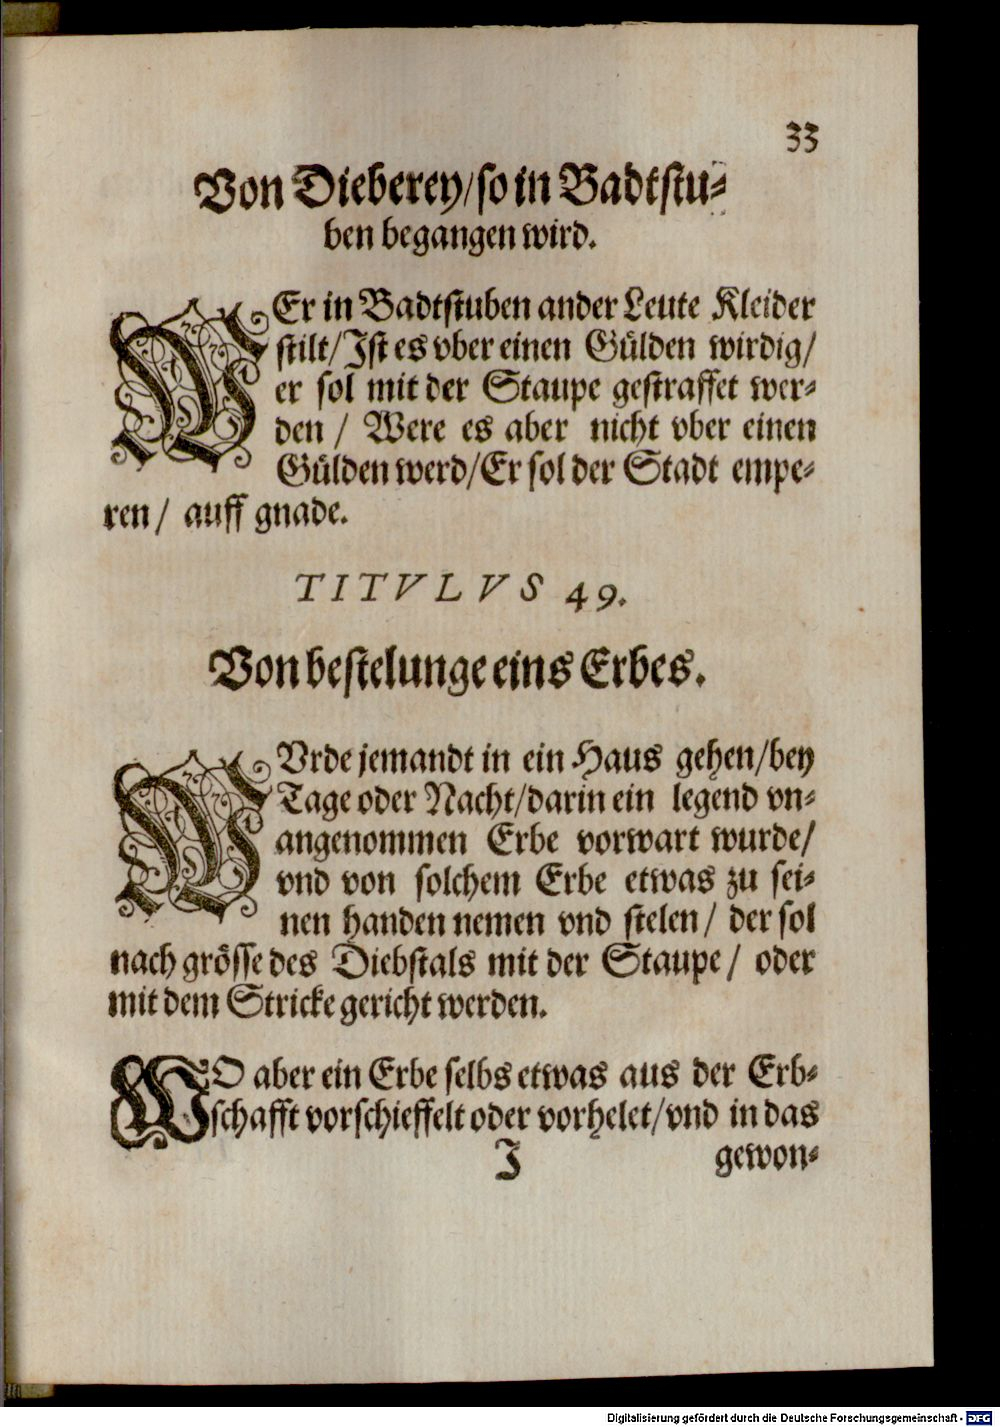 33
Von Dieberey/ so in Badtstu-
ben begangen wird.
WEr in Badtstuben ander Leute Kleider
stilt/ Ist es vber einen Gülden wirdig/
er sol mit der Staupe gestraffet wer-
den / Were es aber nicht vber einen
Gülden werd/ Er sol der Stadt empe-
ren / auff gnade.
TITVLVS 49.
Von bestelunge eins Erbes.
WVrde jemandt in ein Haus gehen/ bey
Tage oder Nacht/ darin ein legend vn-
angenommen Erbe vorwart wurde/
vnd von solchem Erbe etwas zu sei-
nen handen nemen vnd stelen/ der sol
nach grösse des Diebstals mit der Staupe/ oder
mit dem Stricke gericht werden.
WO aber ein Erbe selbs etwas aus der Erb-
schafft vorschieffelt oder vorhelet/ vnd in das
J gewon-
Digitalisierung gefördert durch die Deutsche Forschungsgemeinschaft - DFG